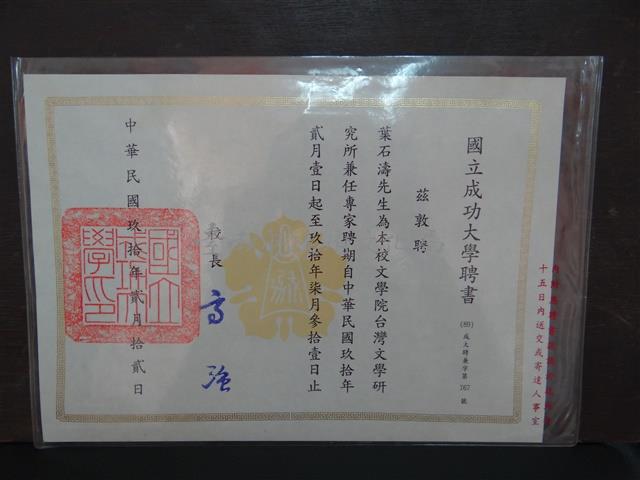 國立成功大學聘書
(89)成大聘兼字第767號
茲敦聘
葉石濤先生為本校文學院台灣文學研
究所兼任專家聘期自中華民國玖拾年
貳月壹日起至玖拾年柒月參拾壹日止
校長 高強
中華民國玖拾年貳月拾貳日
十五日內送交或寄達人事室